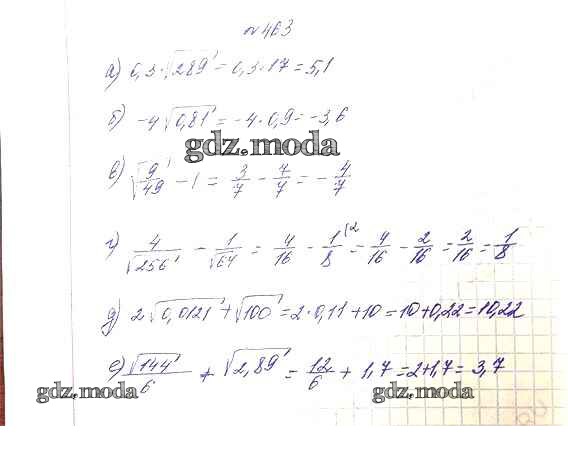 №463
а) 0,3·√289 = 0,3·17 = 5,1
б) -4√0,81 = -4·0,9 = -3,6
gdz.moda
в) √9/49 - 1 = 3/7 - 7/7 = -4/7
г) 4/√256 - 1/√64 = 4/16 - 1/8 |2 = 4/16 - 2/16 = 2/16 = 1/8
д) 2·√0,0121 + √100 = 2·0,11+10 = 10+0,22 = 10,22
е) √144/6 + √2,89 = 12/6 + 1,7 = 2+1,7 = 3,7
gdz.moda gdz.moda